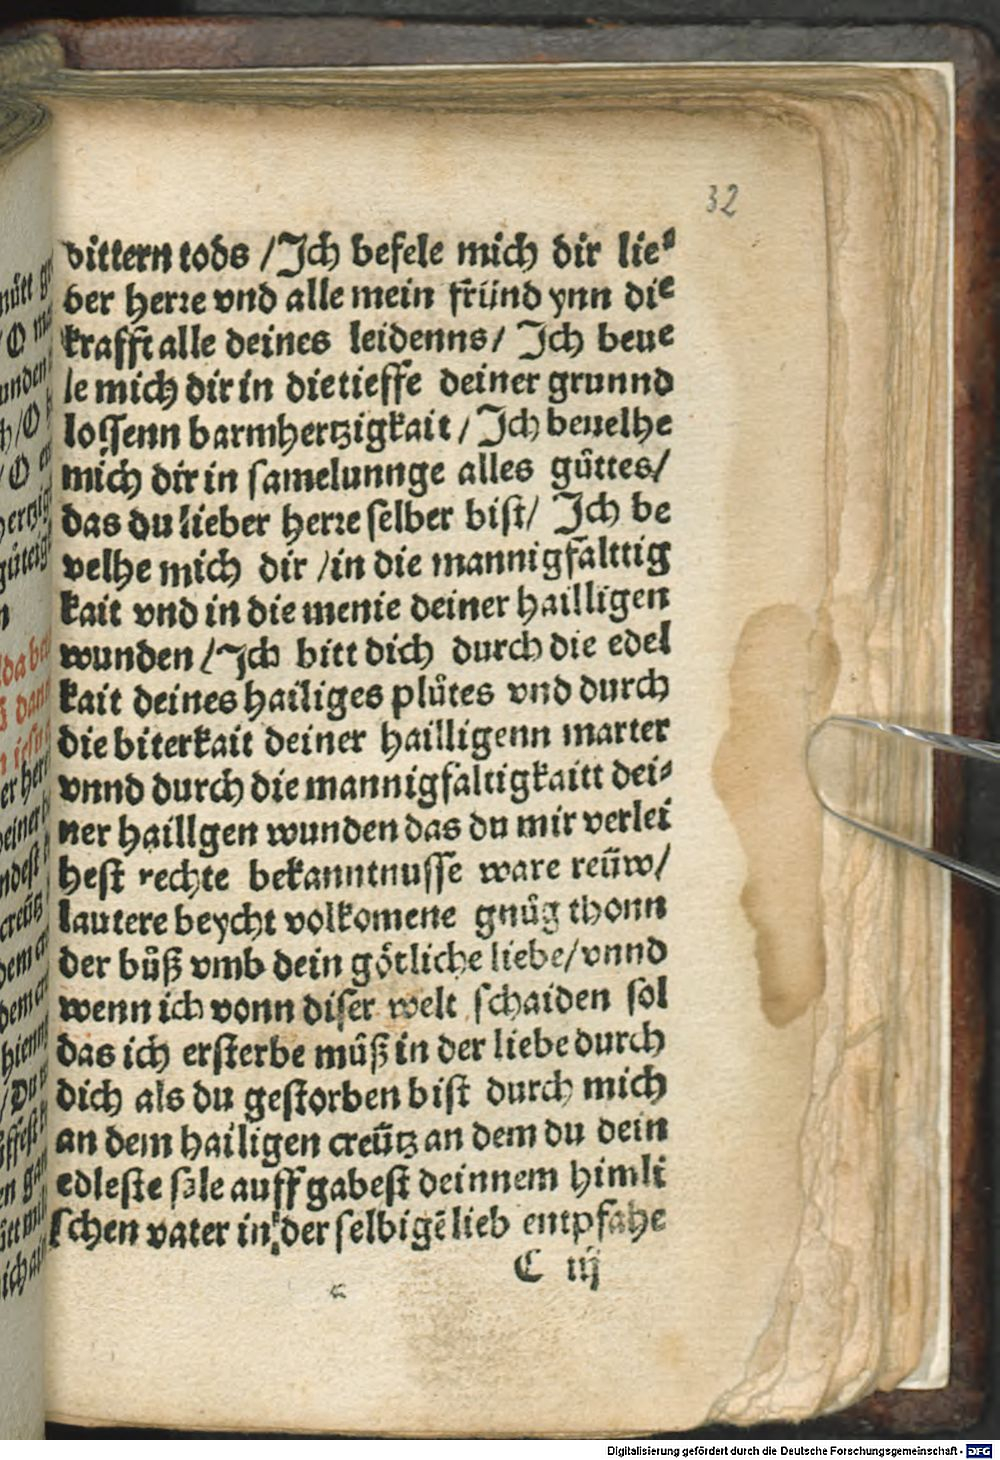 32
bittern tods / Jch befele mich dir lie⸗
ber herꝛe vnd alle mein fründ ynn die
krafft alle deines leidenns / Jch beue
le mich dir in die tieffe deiner grunnd
loſſenn barmhertzigkait / Jch beuelhe
mich dir in ſamelunnge alles gůttes /
das du lieber herꝛe ſelber biſt / Jch be
velhe mich dir / in die mannigfalttig
kait vnd in die menie deiner hailligen
wunden / Jch bitt dich durch die edel
kait deines hailiges plůtes vnd durch
die biterkait deiner hailligenn marter
vnnd durch die mannigfaltigkaitt dei⸗
ner haillgen wunden das du mir verlei
heſt rechte bekanntnuſſe ware reüw /
lautere beycht volkomene gnůg thonn
der bůß vmb dein götliche liebe / vnnd
wenn ich vonn diſer welt ſchaiden ſol
das ich erſterbe můß in der liebe durch
dich als du geſtorben biſt durch mich
an dem hailigen creütz an dem du dein
edleſte ſele auff gabeſt deinnem himli
ſchen vater in der ſelbigē lieb entpfahe
C iij
Digitalisierung gefördert durch die Deutsche Forschungsgemeinschaft - DFG